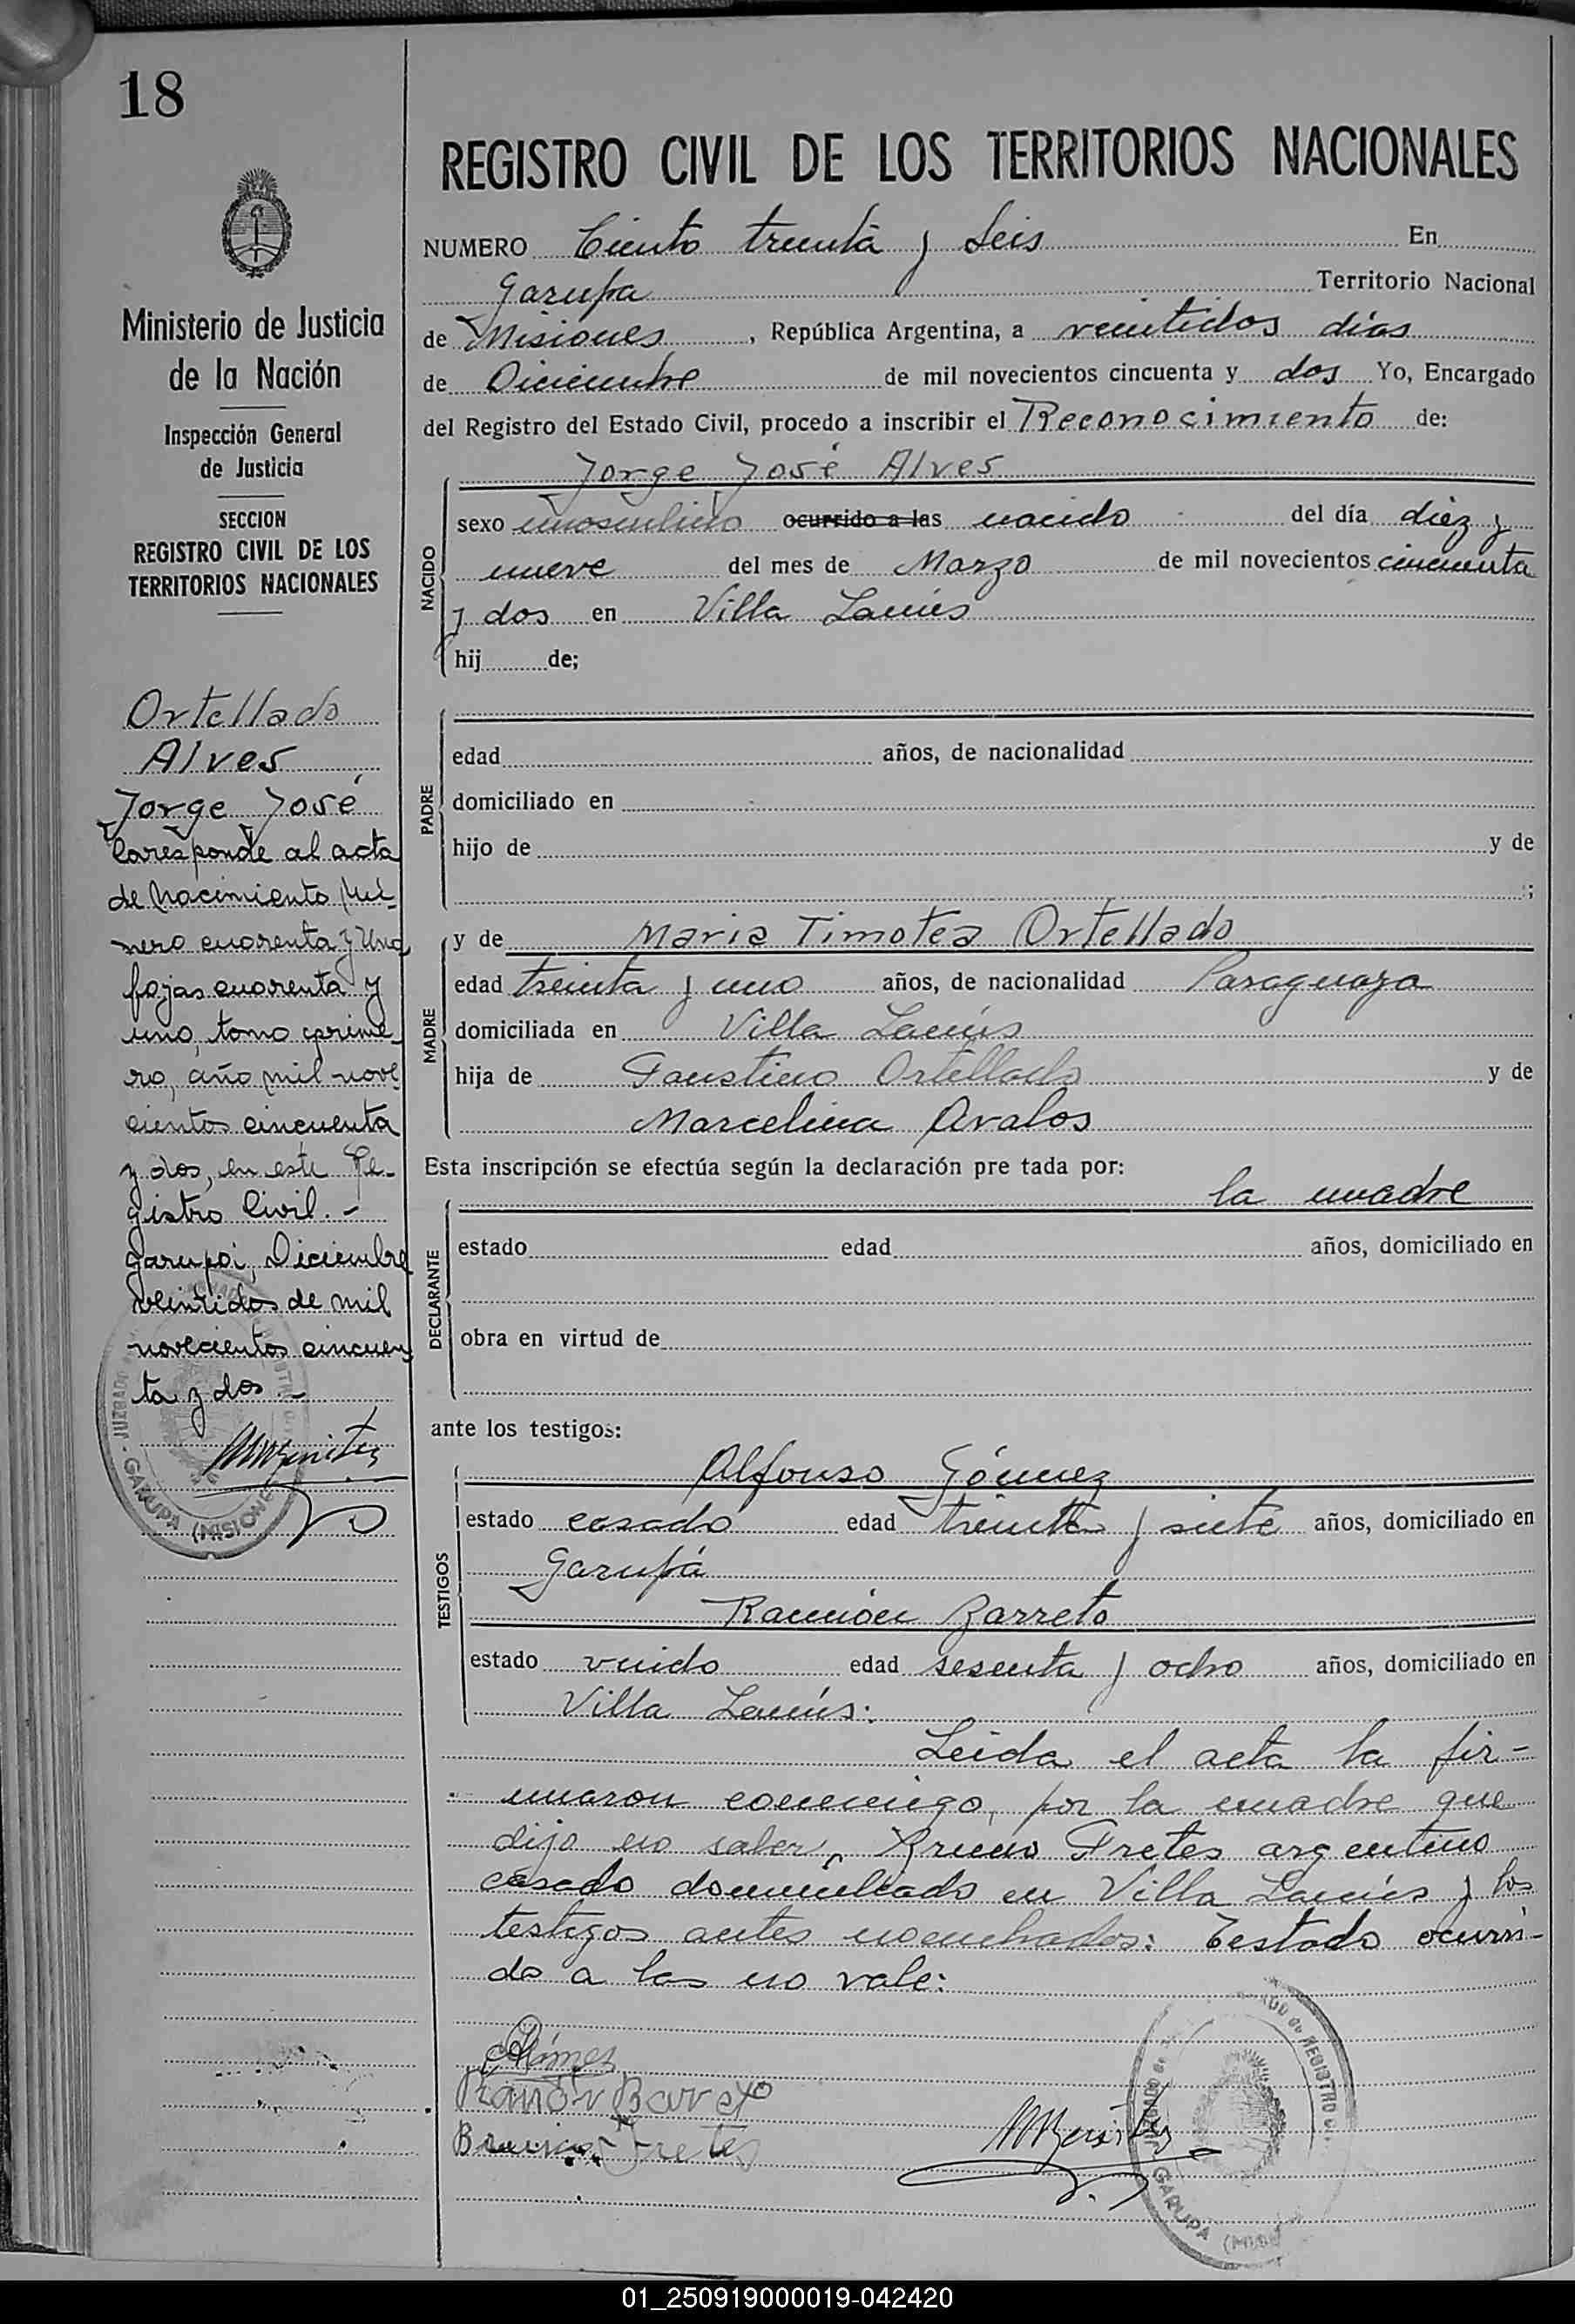 18
Ministerio de Justicia
de la Nación
Inspección General
de Justicia
SECCION
REGISTRO CIVIL DE LOS
TERRITORIOS NACIONALES
Ortellado
Alves
Jorge José
Coresponde al acta
de Nacimiento Nú-
mero cuarenta y Uno
fojas cuarenta y
uno, tomo prime-
ro, año mil nove
cientos cincuenta
y dos, en este Re-
gistro Civil.-
Garupá, Diciembre
veintidos de mil
novecientos cincuen
ta y dos.-
REGISTRO CIVIL DE LOS TERRITORIOS NACIONALES
NUMERO Ciento treinta y Seis En
Garupa Territorio Nacional
de Misiones, República Argentina, a veintidos dias
de Diciembre de mil novecientos cincuenta y dos Yo, Encargado
del Registro del Estado Civil, procedo a inscribir el Reconocimiento de:
Jorge José Alves
NACIDO
sexo masculino ocurrido a las nacido del día diez y
nueve del mes de Marzo de mil novecientos cincuenta
y dos en Villa Lanús
hij de;
PADRE
edad años, de nacionalidad
domiciliado en
hijo de y de
;
MADRE
y de Maria Timotea Ortellado
edad treinta y uno años, de nacionalidad Paraguaya
domiciliada en Villa Lanús
hija de Faustino Ortellado y de
Marcelina Avalos
Esta inscripción se efectúa según la declaración pre tada por:
la madre
DECLARANTE
estado edad años, domiciliado en
obra en virtud de
ante los testigos:
TESTIGOS
Alfonso Gómez
estado casado edad treinta y siete años, domiciliado en
Garupá
Ramón Barreto
estado viudo edad sesenta y ocho años, domiciliado en
Villa Lanús:
Leida el acta la fir-
maron conmigo, por la madre que
dijo no saber, Bruno Fretes argentino
casado domiciliado en Villa Lanús y los
testigos antes nombrados: Testado ocurri-
do a las no vale:
AGómez
Ramón Bareto
Bruno Fretes
GARUPA (MISIONES
REGISTRO
GARUPA
01_250919000019-042420